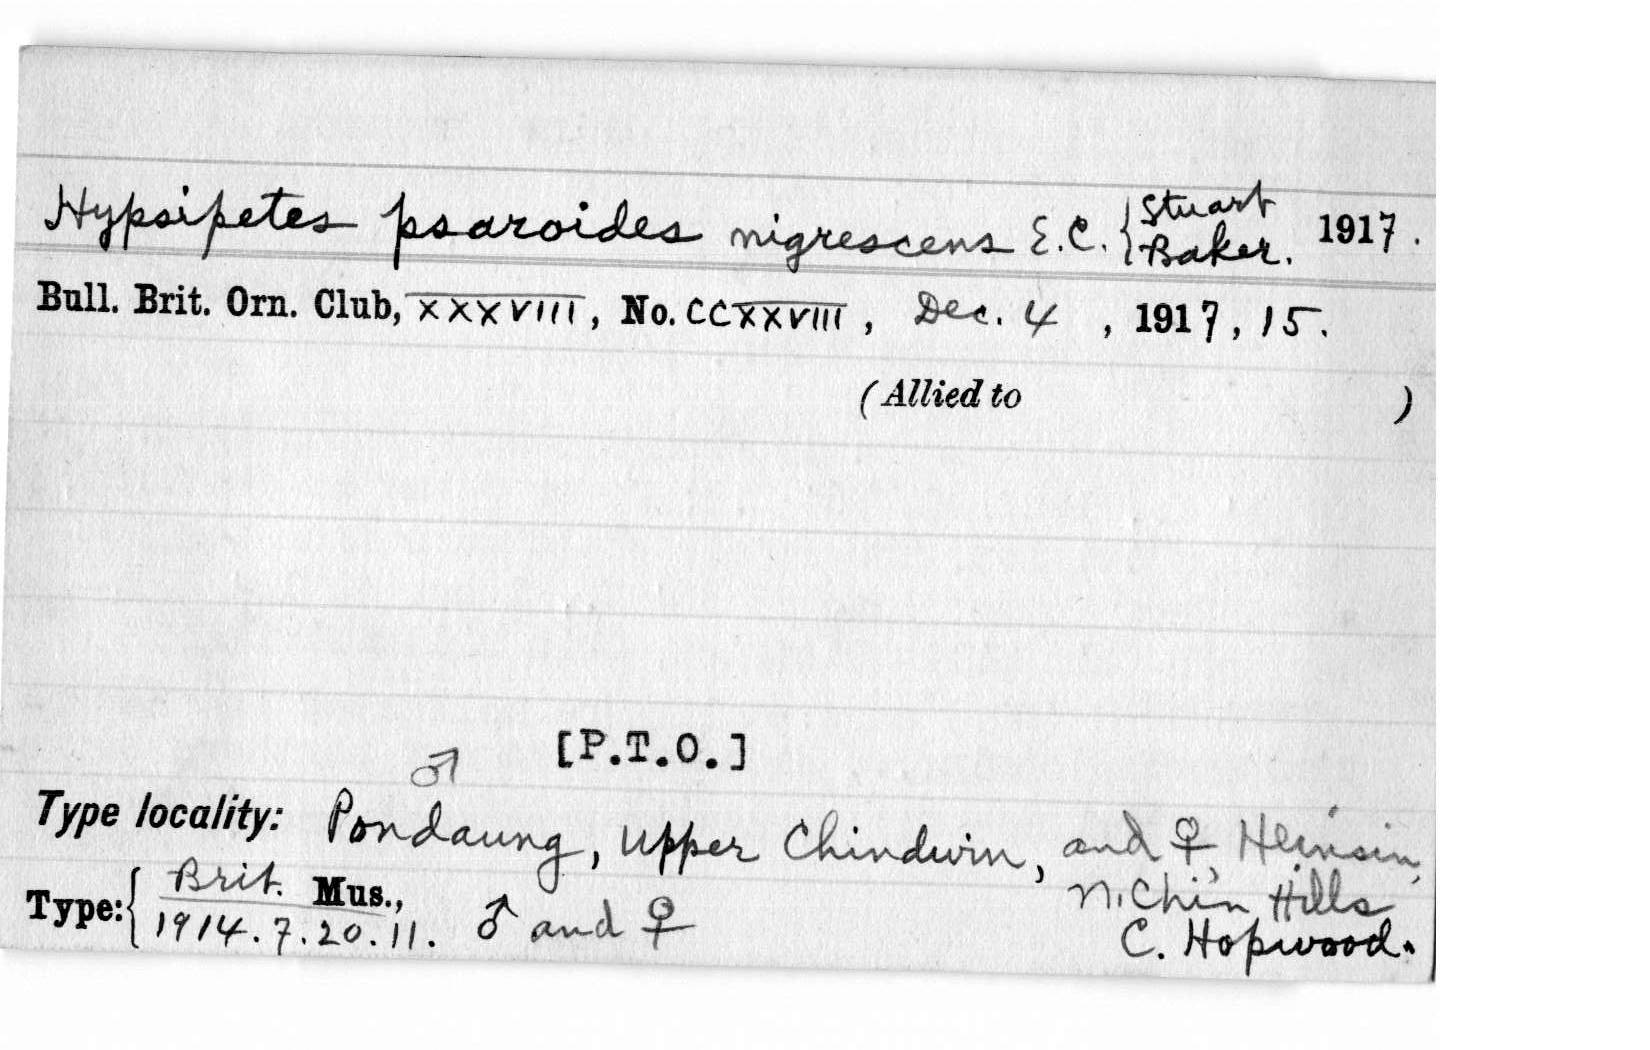 Hypsipetes psaroides nigrescens E.C. { Stuart Baker. 1917.
Bull. Brit. Orn. Club, XXXVIII, No. CCXXVIII, Dec. 4, 1917, 15.
(Allied to )
[P.T.O.]
♂
Type locality: Pondaung, Upper Chindwin, and ♀ Heinsin,
N. Chin Hills
Type: { Brit. Mus., 1914.7.20.11. ♂ and ♀
C. Hopwood.